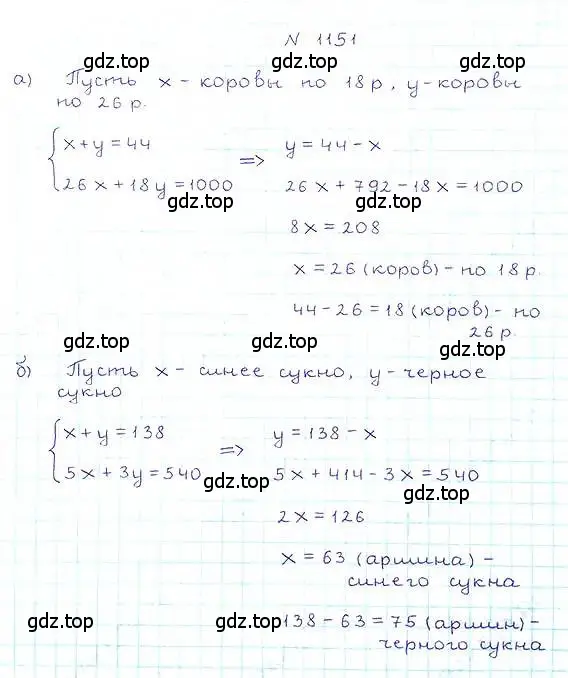 N 1151
gdz.top gdz.top
а) Пусть x - коровы по 18 р, y - коровы
по 26 р.
x + y = 44 => y = 44 - x
26x + 18y = 1000 26x + 792 - 18x = 1000
gdz.top gdz.top
8x = 208
x = 26 (коров) - по 18 р.
44 - 26 = 18 (коров) - по
26 р.
gdz.top gdz.top
б) Пусть x - синее сукно, y - черное
сукно
x + y = 138 => y = 138 - x
5x + 3y = 540 5x + 414 - 3x = 540
gdz.top gdz.top
2x = 126
x = 63 (аршина) -
синего сукна
gdz.top gdz.top
138 - 63 = 75 (аршин) -
черного сукна